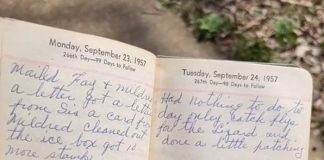 Monday, September 23, 1957
266th Day—99 Days to Follow
Mailed Fay & Mildred
a letter got a letter
from Sis a card fr
Mildred cleaned out
the ice box got
more stamps
Tuesday, September 24, 1957
267th Day—98 Days to Follow
Had nothing to do to
day only catch flys
for the lizard and
done a little patching